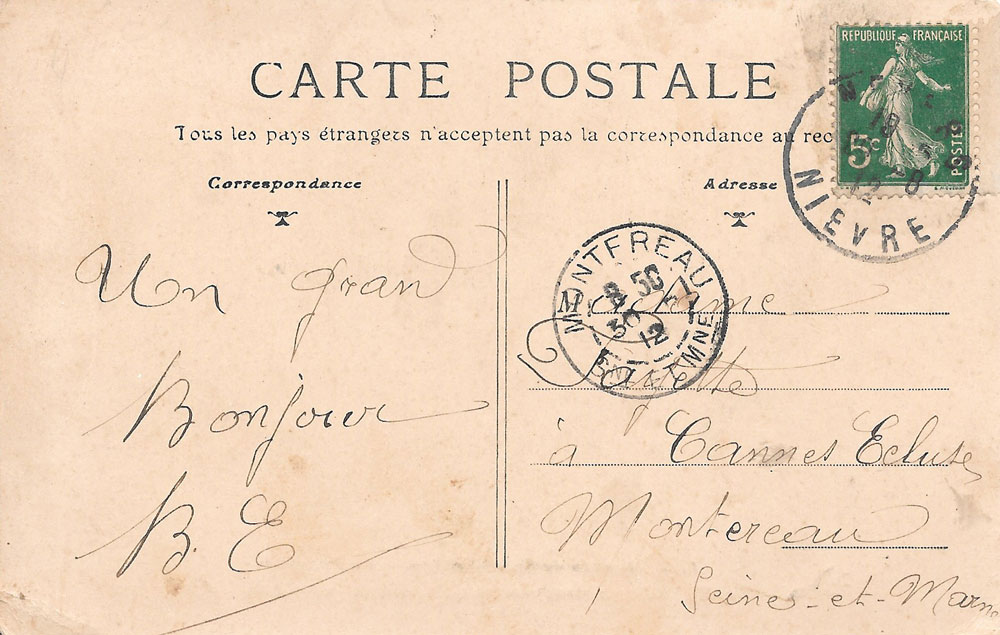 CARTE POSTALE
Tous les pays étrangers n'acceptent pas la correspondance au rec
Correspondance
Adresse
REPUBLIQUE FRANÇAISE
5c
POSTES
NIEVRE
18
12
MONTEREAU
8 30
30
12
SNE ET MNE
Un grand
Bonjour
B. E
Madame
à Cannes Ecluse
Montereau
Seine-et-Marne